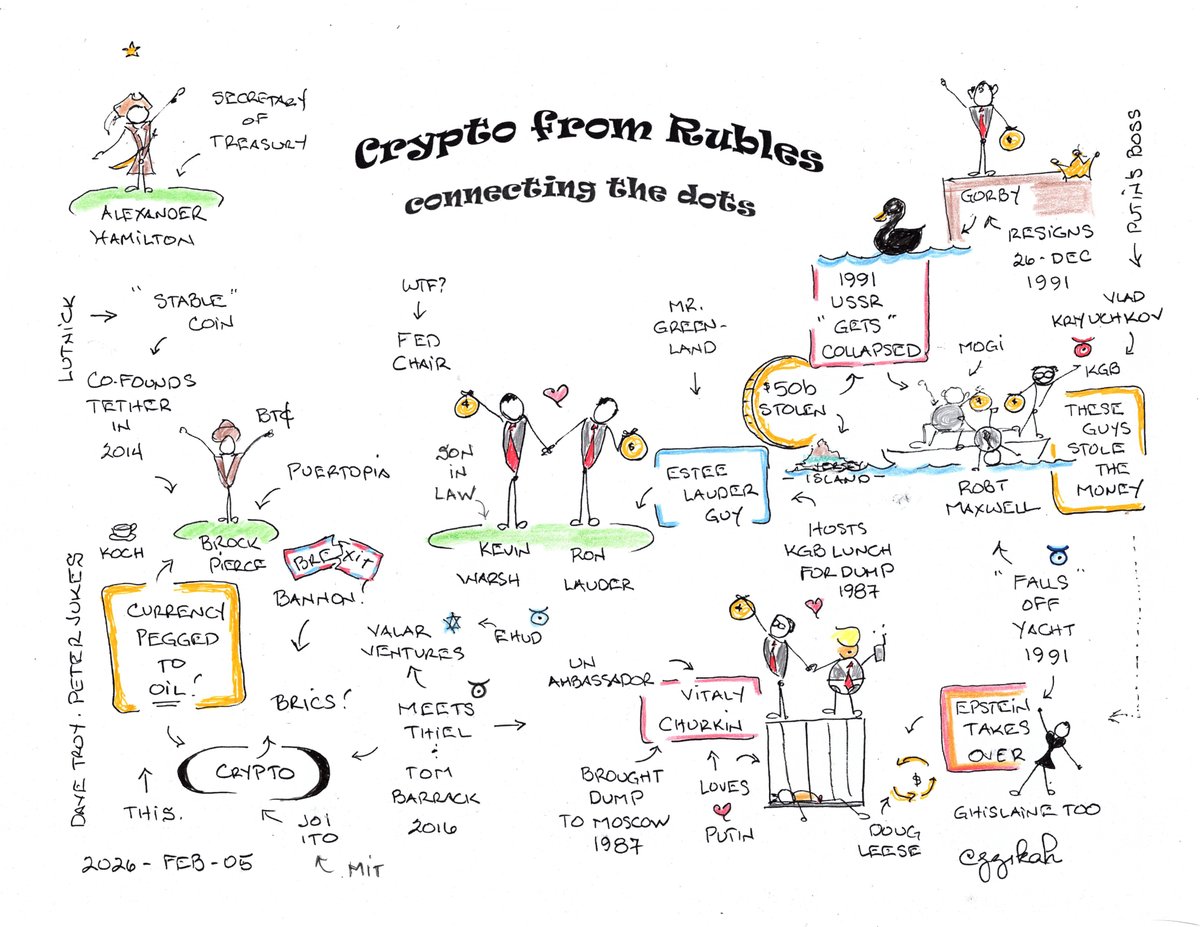 Crypto from Rubles
connecting the dots
SECRETARY
OF
TREASURY
ALEXANDER
HAMILTON
LUTNICK
"STABLE"
COIN
CO-FOUNDS
TETHER
IN
2014
BT¢
PUERTOPIA
KOCH
BROCK
PIERCE
CURRENCY
PEGGED
TO
OIL!
BREXIT
BANNON!
BRICS!
CRYPTO
THIS.
JOI
ITO
MIT
DAVE TROY. PETER JUKES
2026-FEB-05
WTF?
FED
CHAIR
SON
IN
LAW
KEVIN
WARSH
RON
LAUDER
MR.
GREEN-
LAND
ESTEE
LAUDER
GUY
VALAR
VENTURES
EHUD
MEETS
THIEL
:
TOM
BARRACK
2016
HOSTS
KGB LUNCH
FOR DUMP
1987
UN
AMBASSADOR
VITALY
CHURKIN
BROUGHT
DUMP
TO MOSCOW
1987
LOVES
PUTIN
$
DOUG
LEESE
GORBY
RESIGNS
26-DEC
1991
PUTIN'S BOSS
1991
USSR
"GETS"
COLLAPSED
$50b
STOLEN
ISLAND
MOGI
VLAD
KRYUCHKOV
KGB
THESE
GUYS
STOLE
THE
MONEY
ROBT
MAXWELL
"FALLS"
OFF
YACHT
1991
EPSTEIN
TAKES
OVER
GHISLAINE TOO
czzikah